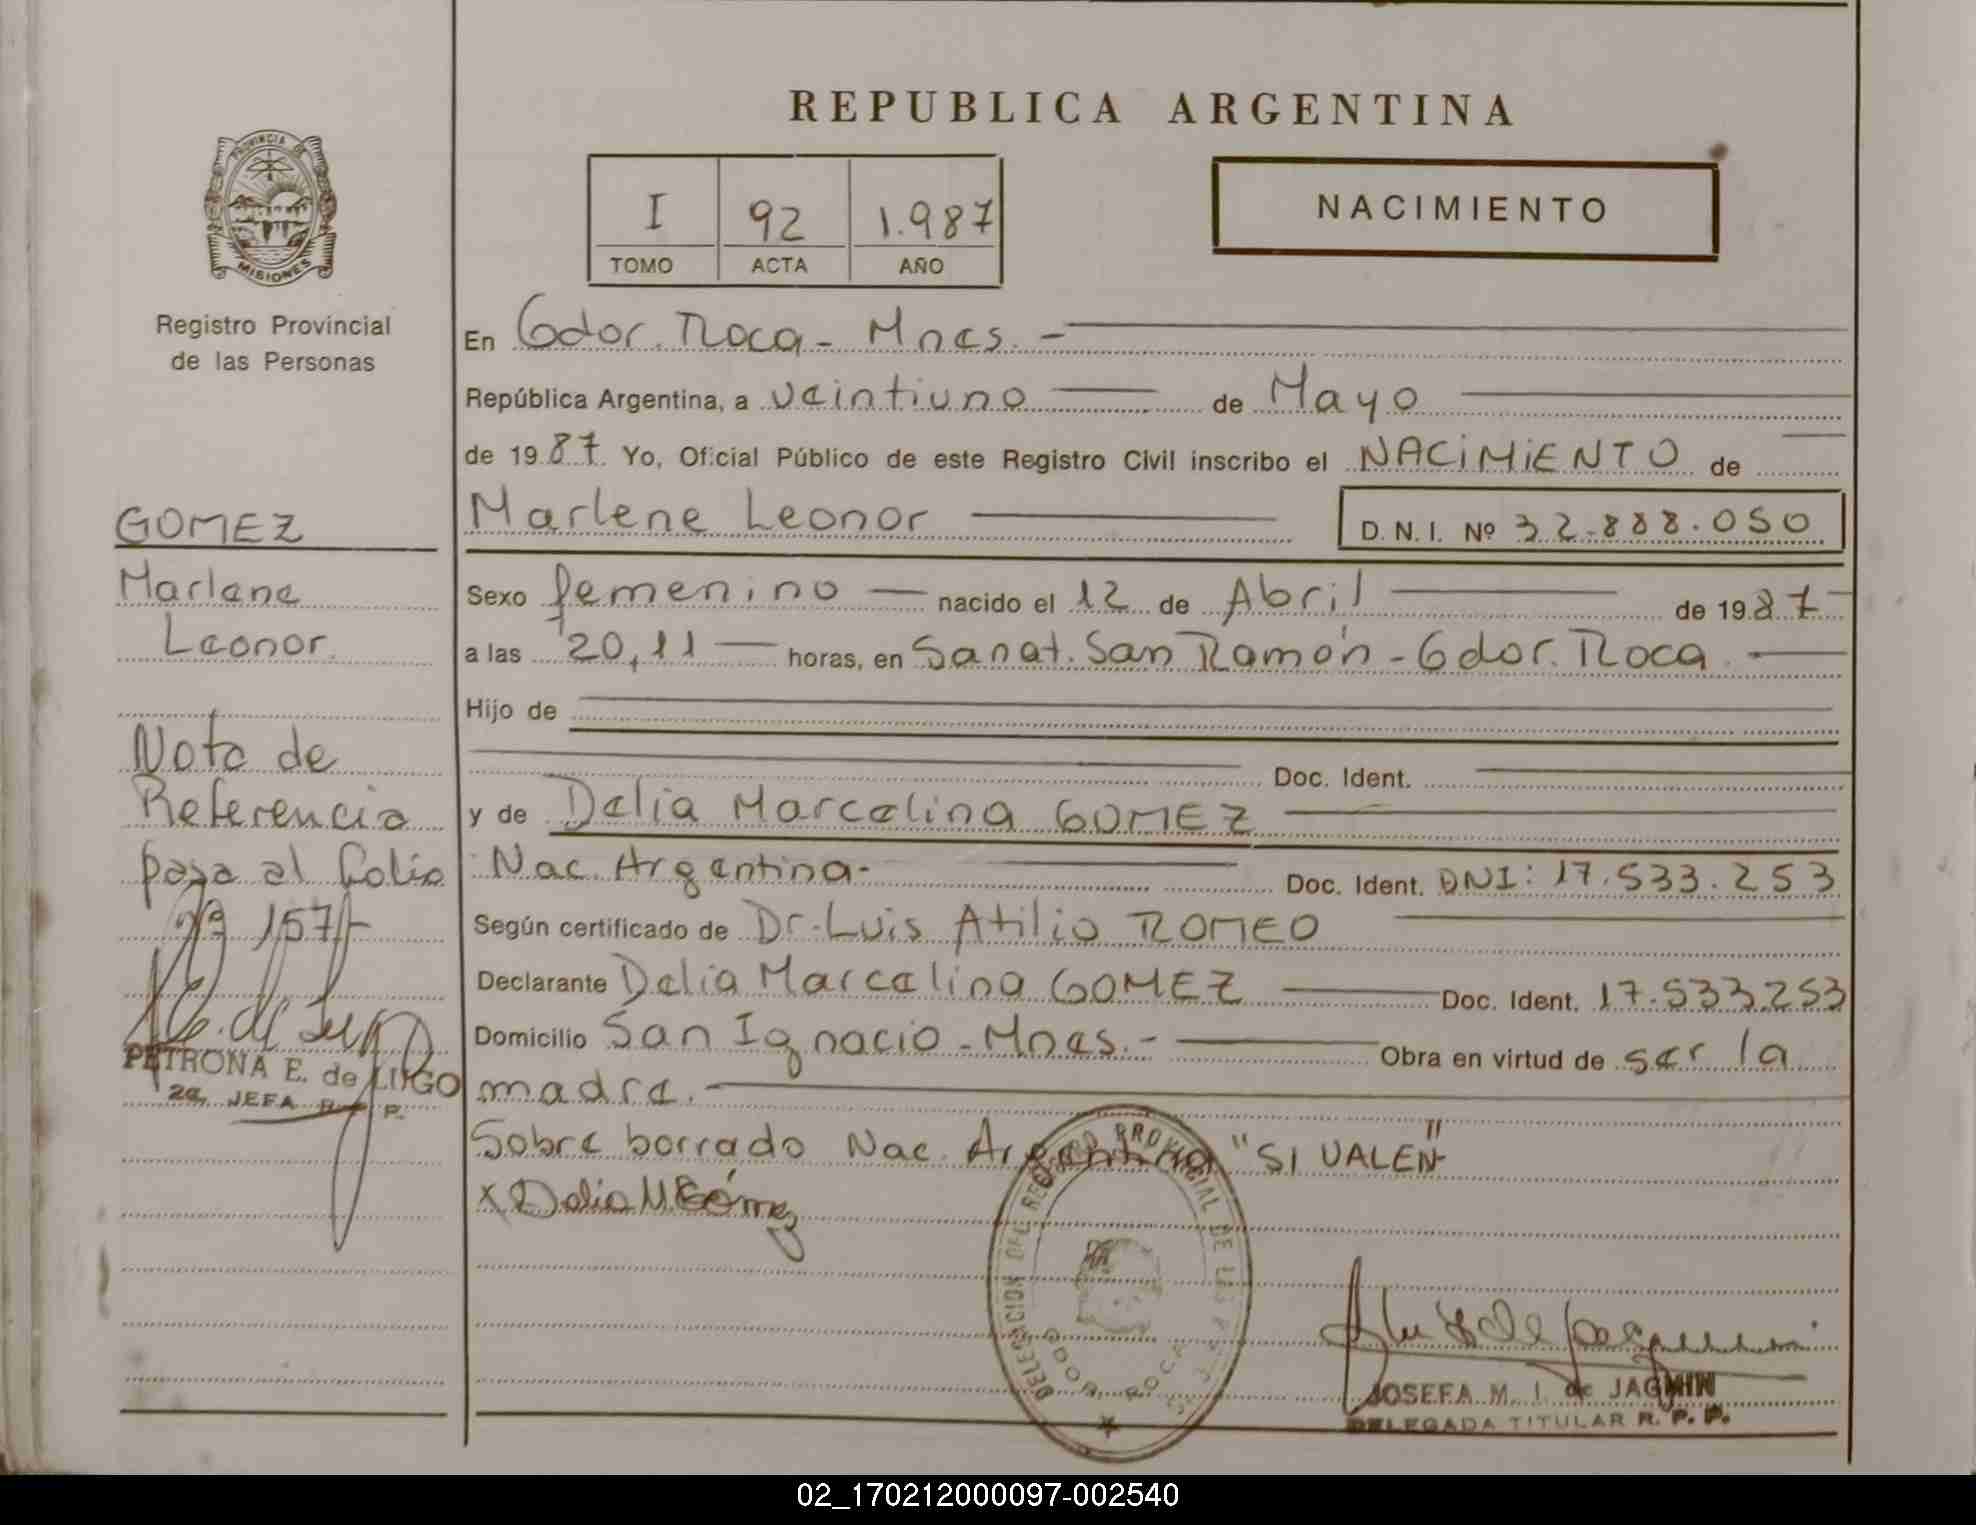 REPUBLICA ARGENTINA
PROVINCIA DE
MISIONES
Registro Provincial
de las Personas
I 92 1.987
TOMO ACTA AÑO
NACIMIENTO
En Gdor. Roca - Mnes. -
República Argentina, a veintiuno de Mayo
de 1987. Yo, Oficial Público de este Registro Civil inscribo el NACIMIENTO de
Marlene Leonor D.N.I. Nº 32.888.050
Sexo femenino nacido el 12 de Abril de 1987
a las 20,11 horas, en Sanat. San Ramón - Gdor. Roca.
Hijo de
Doc. Ident.
y de Delia Marcelina GOMEZ
Nac. Argentina- Doc. Ident. DNI: 17.533.253
Según certificado de Dr. Luis Atilio ROMEO
Declarante Delia Marcelina GOMEZ Doc. Ident. 17.533.253
Domicilio San Ignacio - Mnes. - Obra en virtud de ser la
madre.
Sobre borrado Nac. Argentina "SI VALEN"
x Delia M. Gómez
GOMEZ
Marlene
Leonor.
Nota de
Referencia
pasa al folio
157
PETRONA E. de LUGO
2a. JEFA R. P. P.
DELEGACION DEL REGISTRO PROVINCIAL DE LAS
GDOR. ROCA
JOSEFA M. I. de JAGMIN
DELEGADA TITULAR R. P. P.
02_170212000097-002540